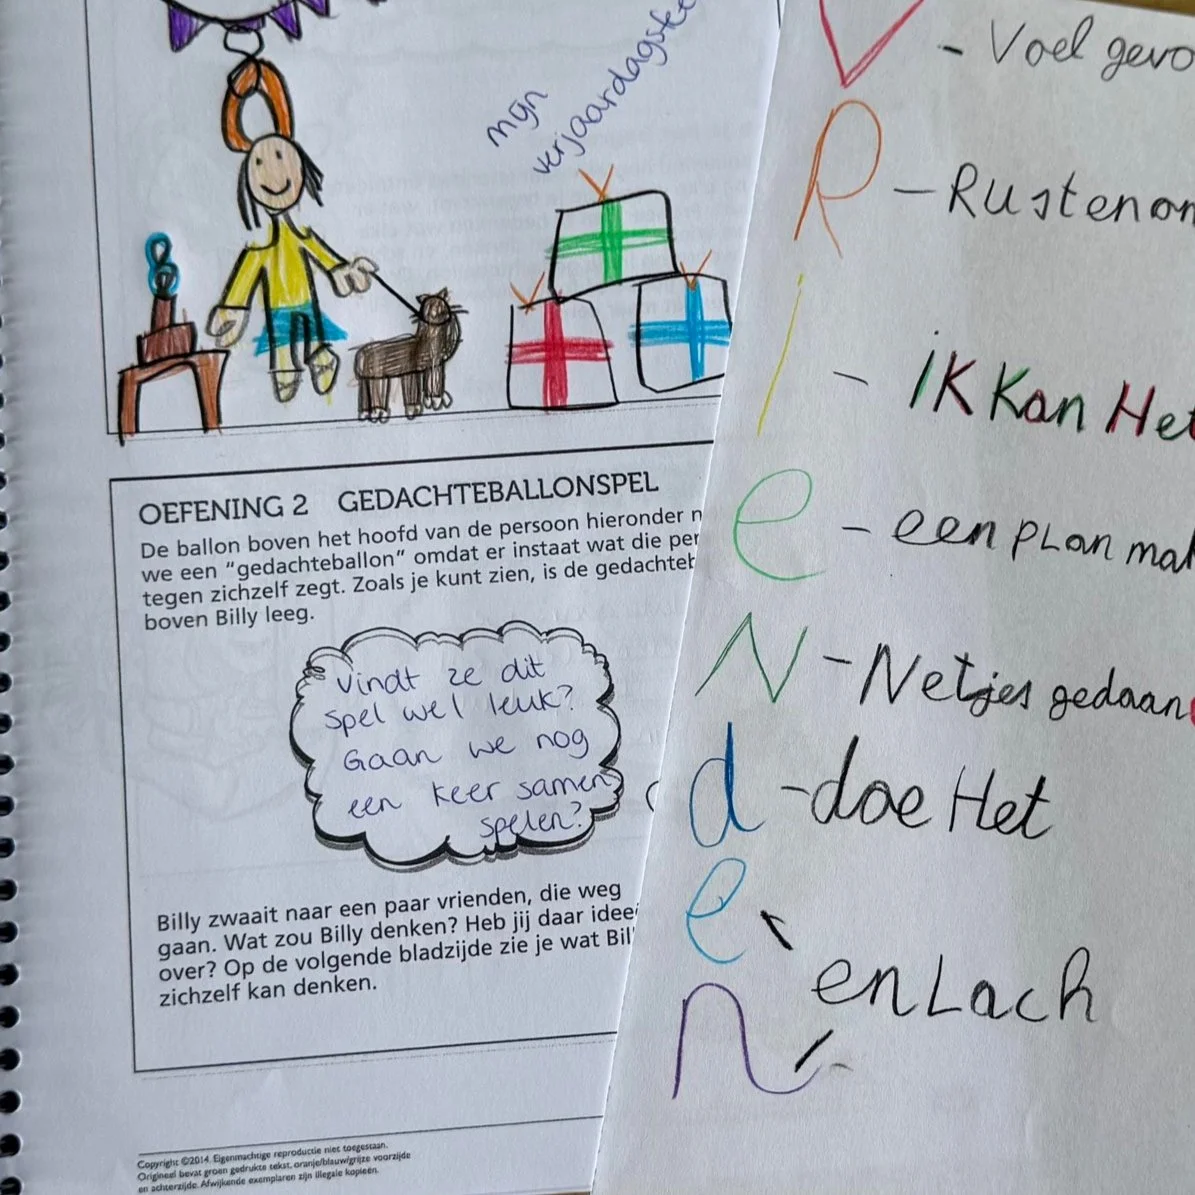 mijn
OEFENING 2 GEDACHTEBALLONSPEL
De ballon boven het hoofd van de persoon hieronder
we een “gedachteballon” omdat er instaat wat die
tegen zichzelf zegt. Zoals je kunt zien, is de
boven Billy leeg.
Vindt ze dit
spel wel leuk?
Gaan we nog
een keer samen
spelen?
Billy zwaait naar een paar vrienden, die weg
gaan. Wat zou Billy denken? Heb jij daar
over? Op de volgende bladzijde zie je wat
zichzelf kan denken.
Copyright ©2014. Eigenmachtige reproductie niet toegestaan.
Origineel bevat groen gedrukte tekst, oranje/blauw/grijze voorzijde
en achterzijde. Afwijkende exemplaren zijn illegale kopieën.
V - Voel
R - Rusten
i - iK Kan Het
e - een pLan
N - Netjes gedaan
d - doe Het
e
en Lach
n